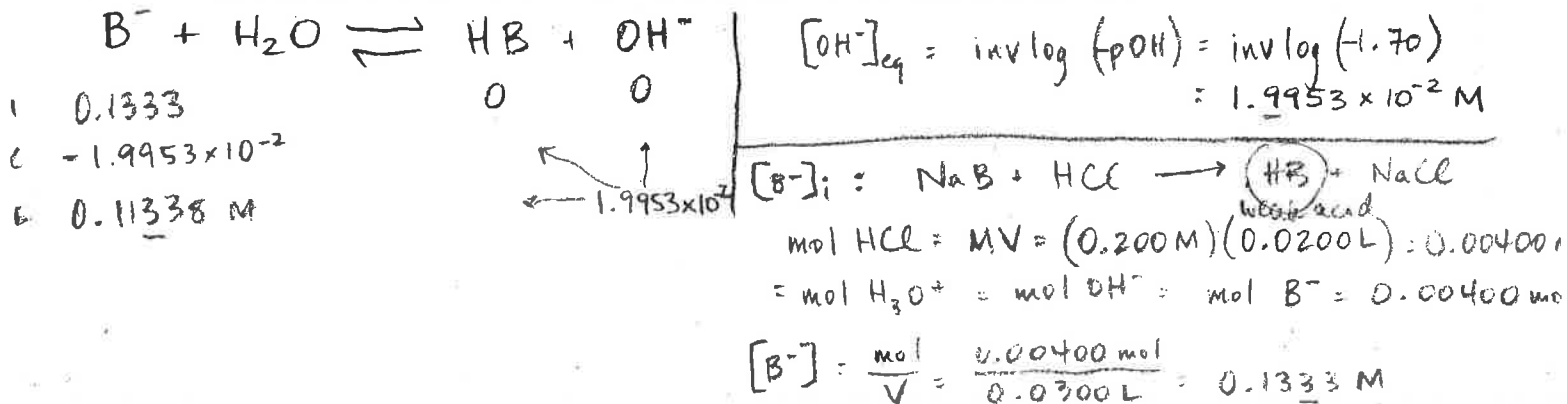 B⁻ + H₂O ⇌ HB + OH⁻
I 0.1333 0 0
C -1.9953×10⁻²
E 0.11338 M ← 1.9953×10⁻²
[OH⁻]eq = inv log (-pOH) = inv log (-1.70)
= 1.9953 × 10⁻² M
[B⁻]i : NaB + HCl → HB + NaCl
weak acid
mol HCl = MV = (0.200M)(0.0200L) = 0.00400
= mol H₃O⁺ = mol OH⁻ = mol B⁻ = 0.00400 mo
[B⁻] = mol/V = 0.00400 mol/0.0300L = 0.1333 M